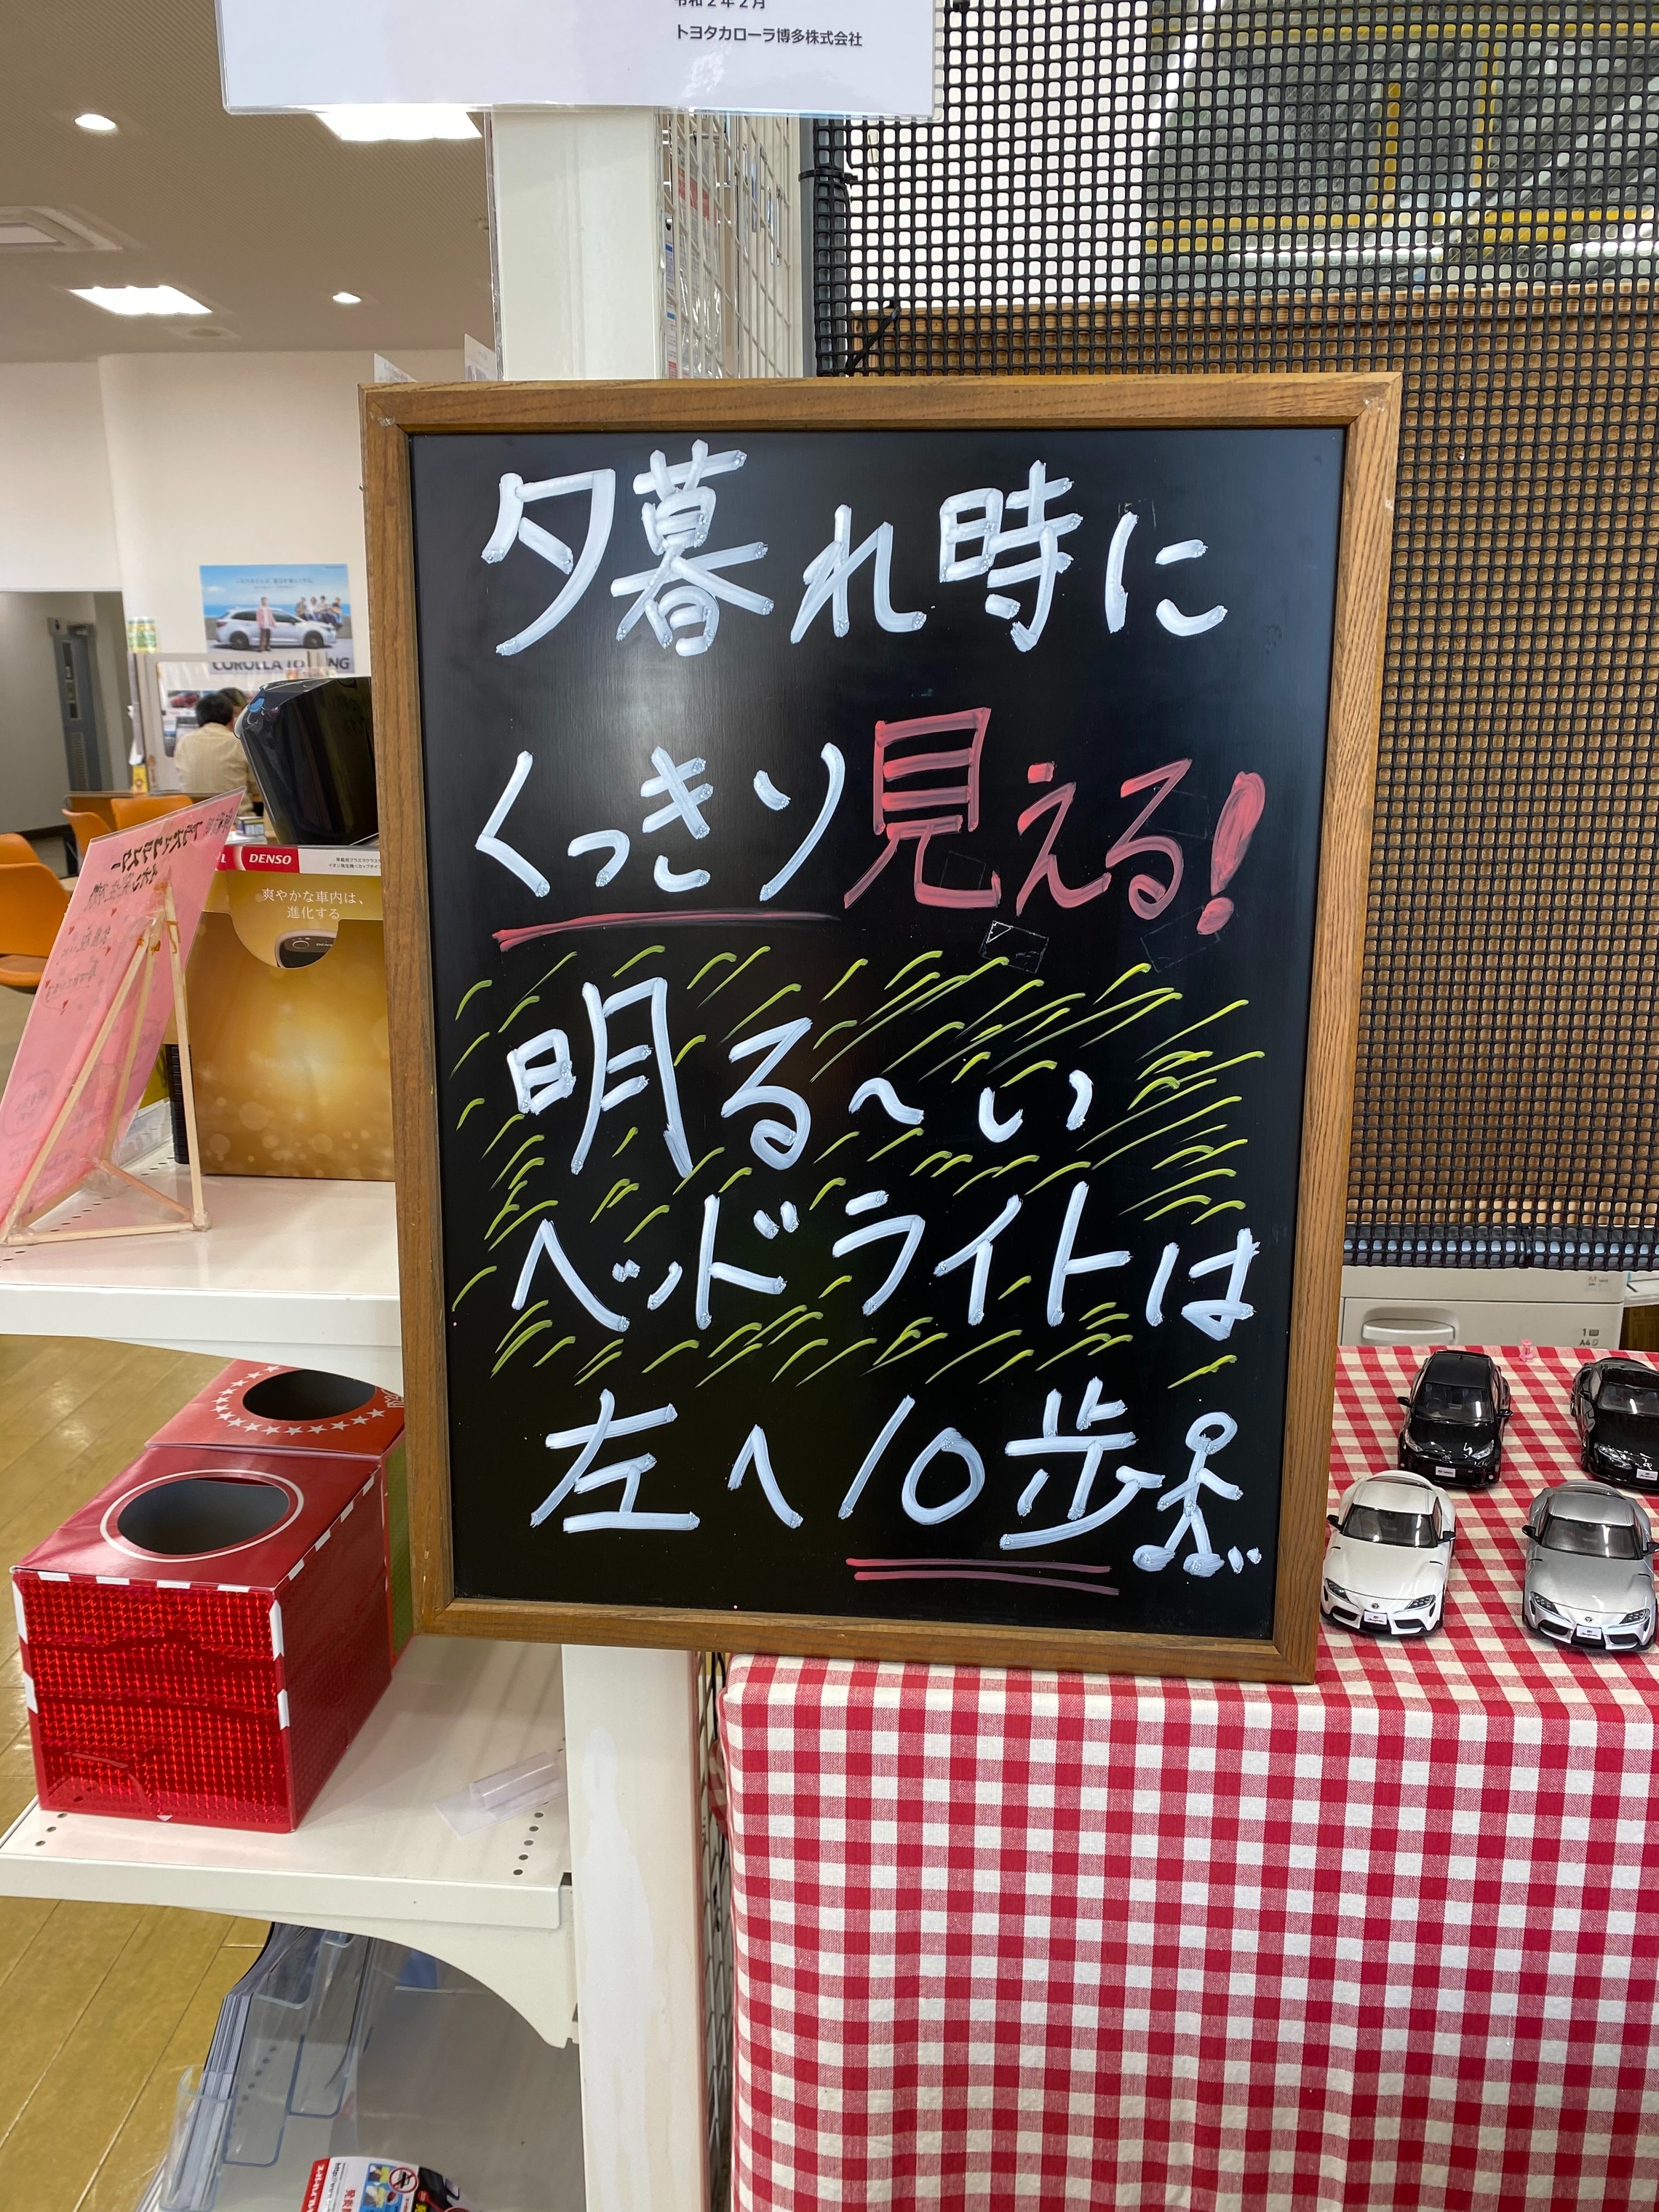 令和2年2月
トヨタカローラ博多株式会社
夕暮れ時に
くっきり見える!
明る〜い
ヘッドライトは
左へ10歩
COROLLA TO
NG
DENSO
爽やかな車内は、
進化する
1
A4